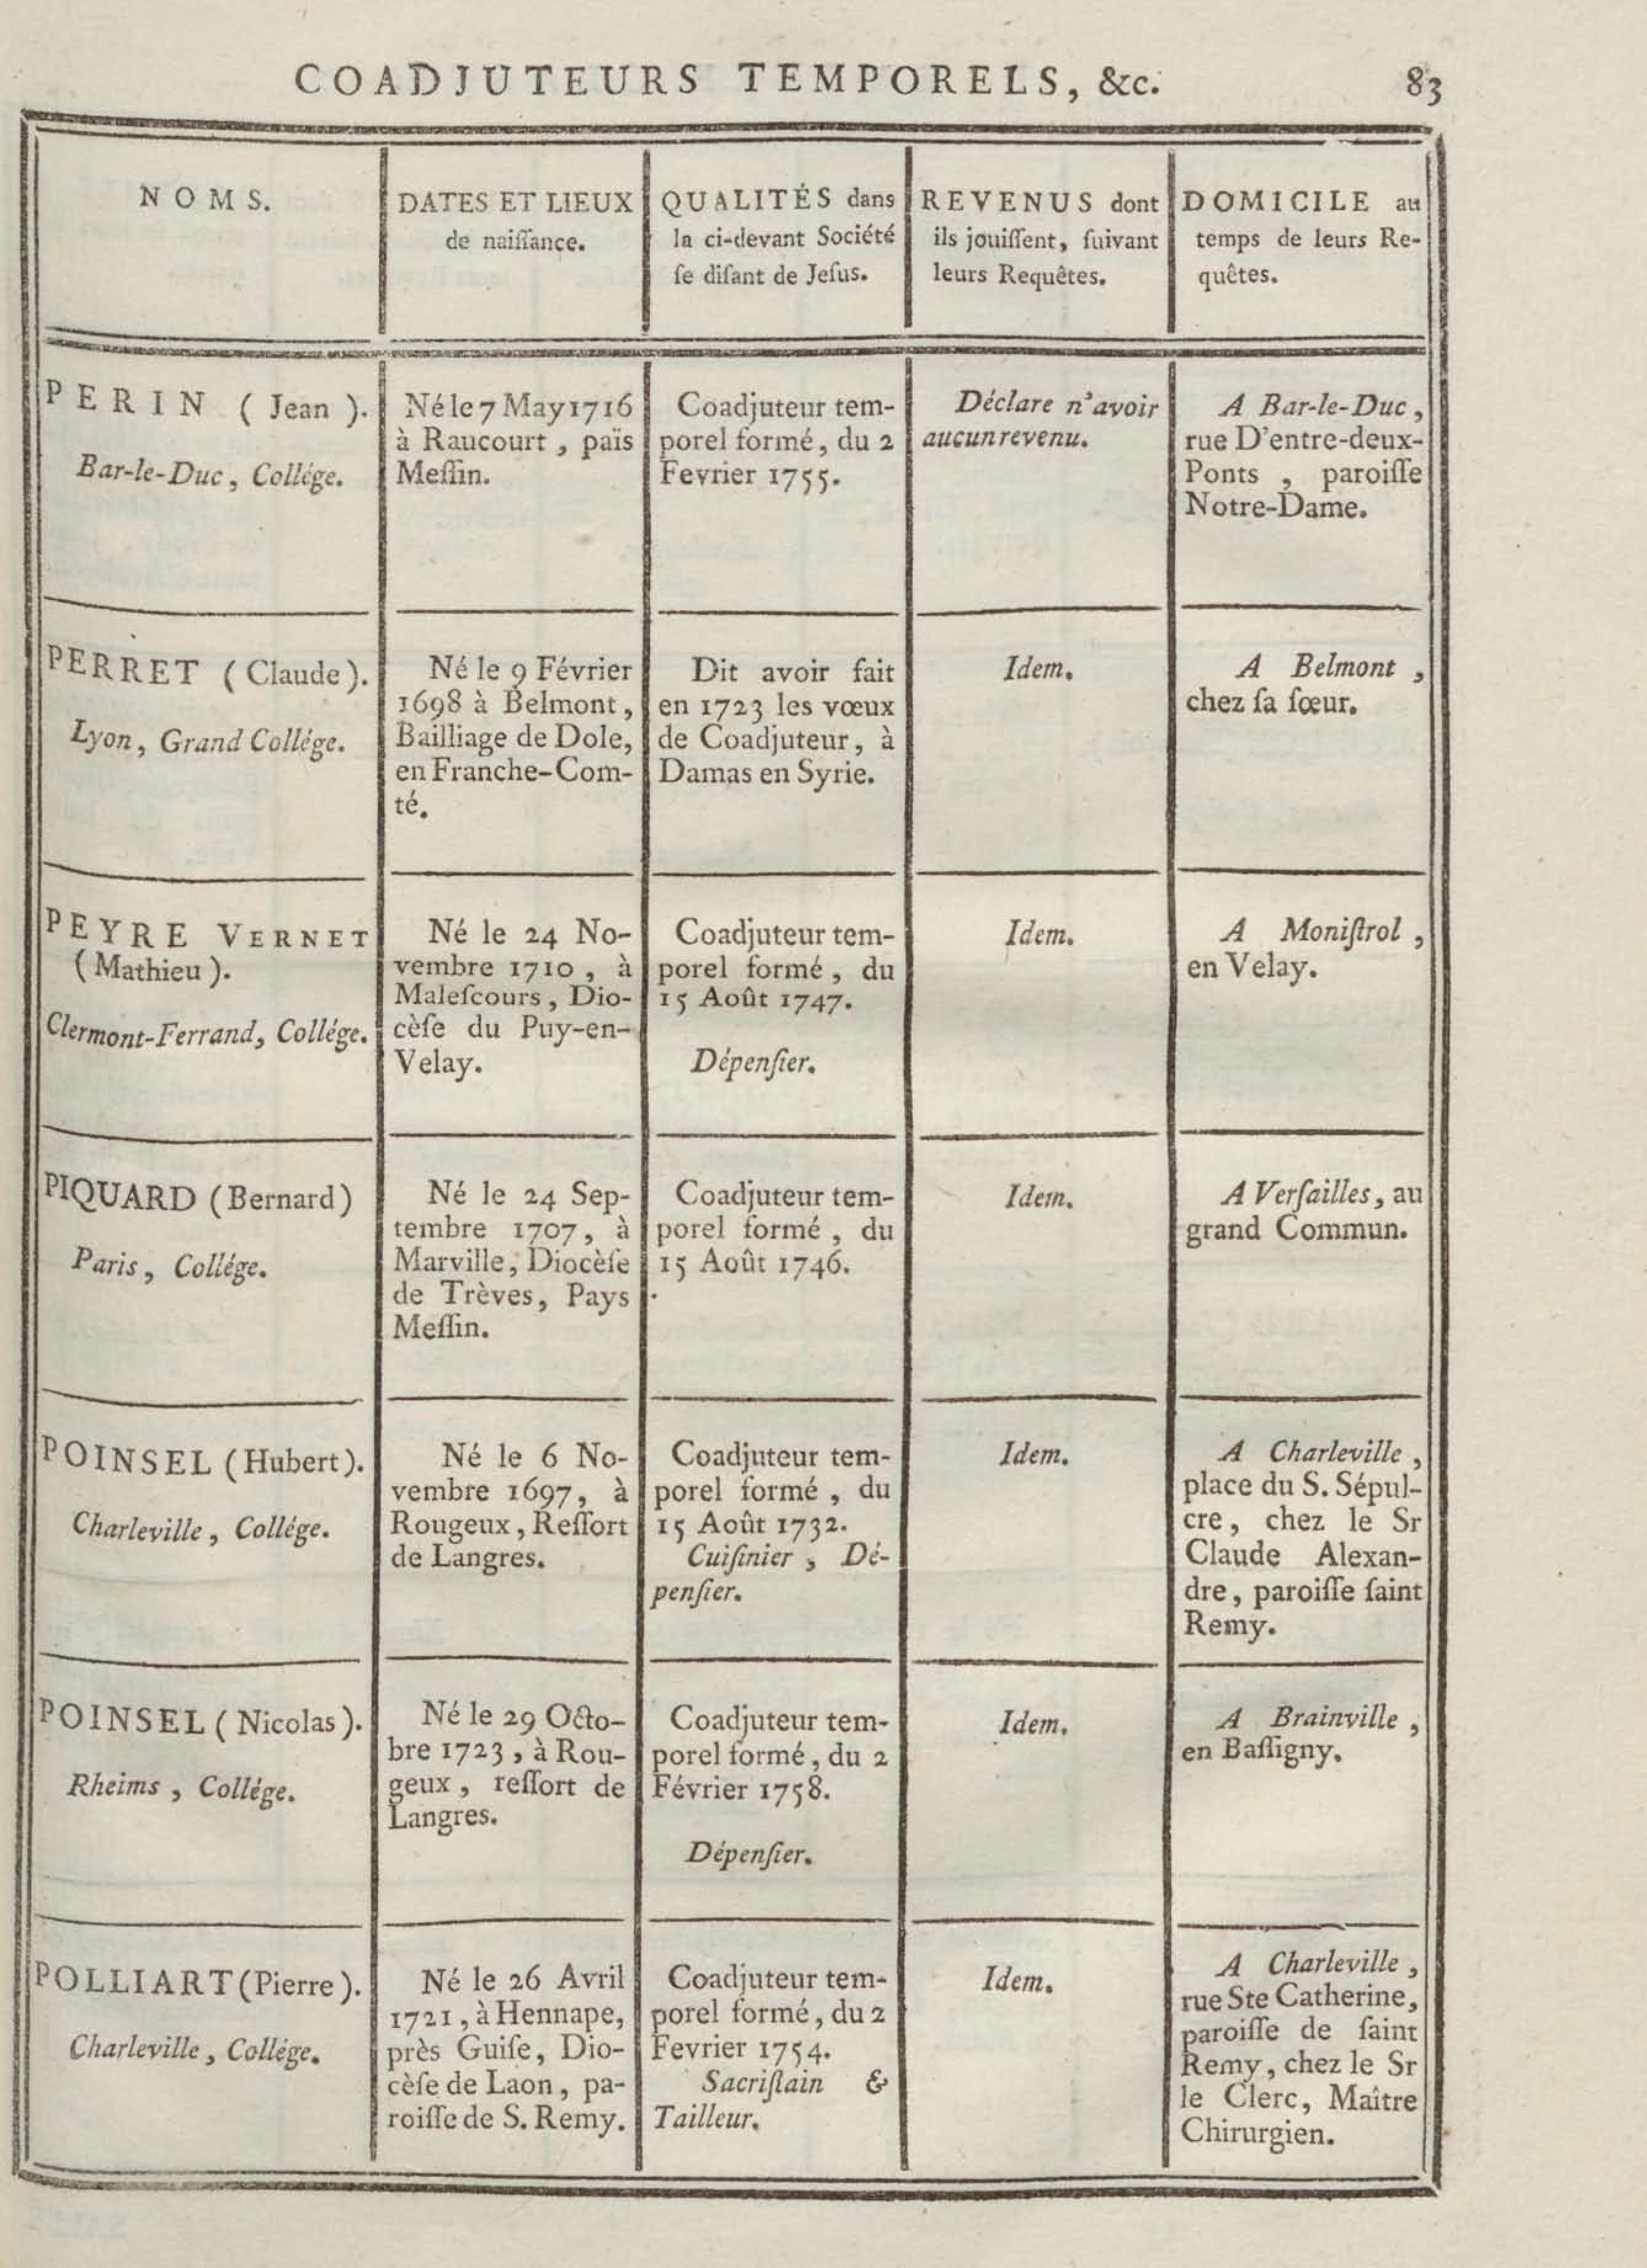 COADJUTEURS TEMPORELS, &c. 83
NOMS.
DATES ET LIEUX
de naiſſance.
QUALITÉS dans
la ci-devant Société
ſe diſant de Jeſus.
REVENUS dont
ils jouiſſent, ſuivant
leurs Requêtes.
DOMICILE au
temps de leurs Re-
quêtes.
PERIN ( Jean ).
Bar-le-Duc, Collége.
Né le 7 May 1716
à Raucourt, païs
Meſſin.
Coadjuteur tem-
porel formé, du 2
Fevrier 1755.
Déclare n'avoir
aucun revenu.
A Bar-le-Duc,
rue D'entre-deux-
Ponts, paroiſſe
Notre-Dame.
PERRET ( Claude ).
Lyon, Grand Collége.
Né le 9 Février
1698 à Belmont,
Bailliage de Dole,
en Franche-Com-
té.
Dit avoir fait
en 1723 les vœux
de Coadjuteur, à
Damas en Syrie.
Idem.
A Belmont,
chez ſa ſœur.
PEYRE VERNET
( Mathieu ).
Clermont-Ferrand, Collége.
Né le 24 No-
vembre 1710, à
Maleſcours, Dio-
cèſe du Puy-en-
Velay.
Coadjuteur tem-
porel formé, du
15 Août 1747.
Dépenſier.
Idem.
A Moniſtrol,
en Velay.
PIQUARD ( Bernard )
Paris, Collége.
Né le 24 Sep-
tembre 1707, à
Marville, Diocèſe
de Trèves, Pays
Meſſin.
Coadjuteur tem-
porel formé, du
15 Août 1746.
Idem.
A Verſailles, au
grand Commun.
POINSEL ( Hubert ).
Charleville, Collége.
Né le 6 No-
vembre 1697, à
Rougeux, Reſſort
de Langres.
Coadjuteur tem-
porel formé, du
15 Août 1732.
Cuiſinier, Dé-
penſier.
Idem.
A Charleville,
place du S. Sépul-
cre, chez le Sr
Claude Alexan-
dre, paroiſſe ſaint
Remy.
POINSEL ( Nicolas ).
Rheims, Collége.
Né le 29 Octo-
bre 1723, à Rou-
geux, reſſort de
Langres.
Coadjuteur tem-
porel formé, du 2
Février 1758.
Dépenſier.
Idem.
A Brainville,
en Baſſigny.
POLLIART ( Pierre ).
Charleville, Collége.
Né le 26 Avril
1721, à Hennape,
près Guiſe, Dio-
cèſe de Laon, pa-
roiſſe de S. Remy.
Coadjuteur tem-
porel formé, du 2
Fevrier 1754.
Sacriſtain &
Tailleur.
Idem.
A Charleville,
rue Ste Catherine,
paroiſſe de ſaint
Remy, chez le Sr
le Clerc, Maître
Chirurgien.